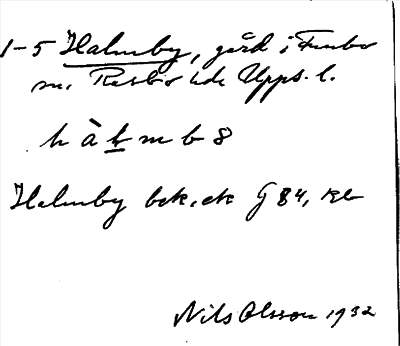 1-5 Halmby, gård i Funbo
sn. Rasbo hd. Upps. l.
h à l m b 8
Halmby bok. ek G 84, Kb
Nils Olsson 1932